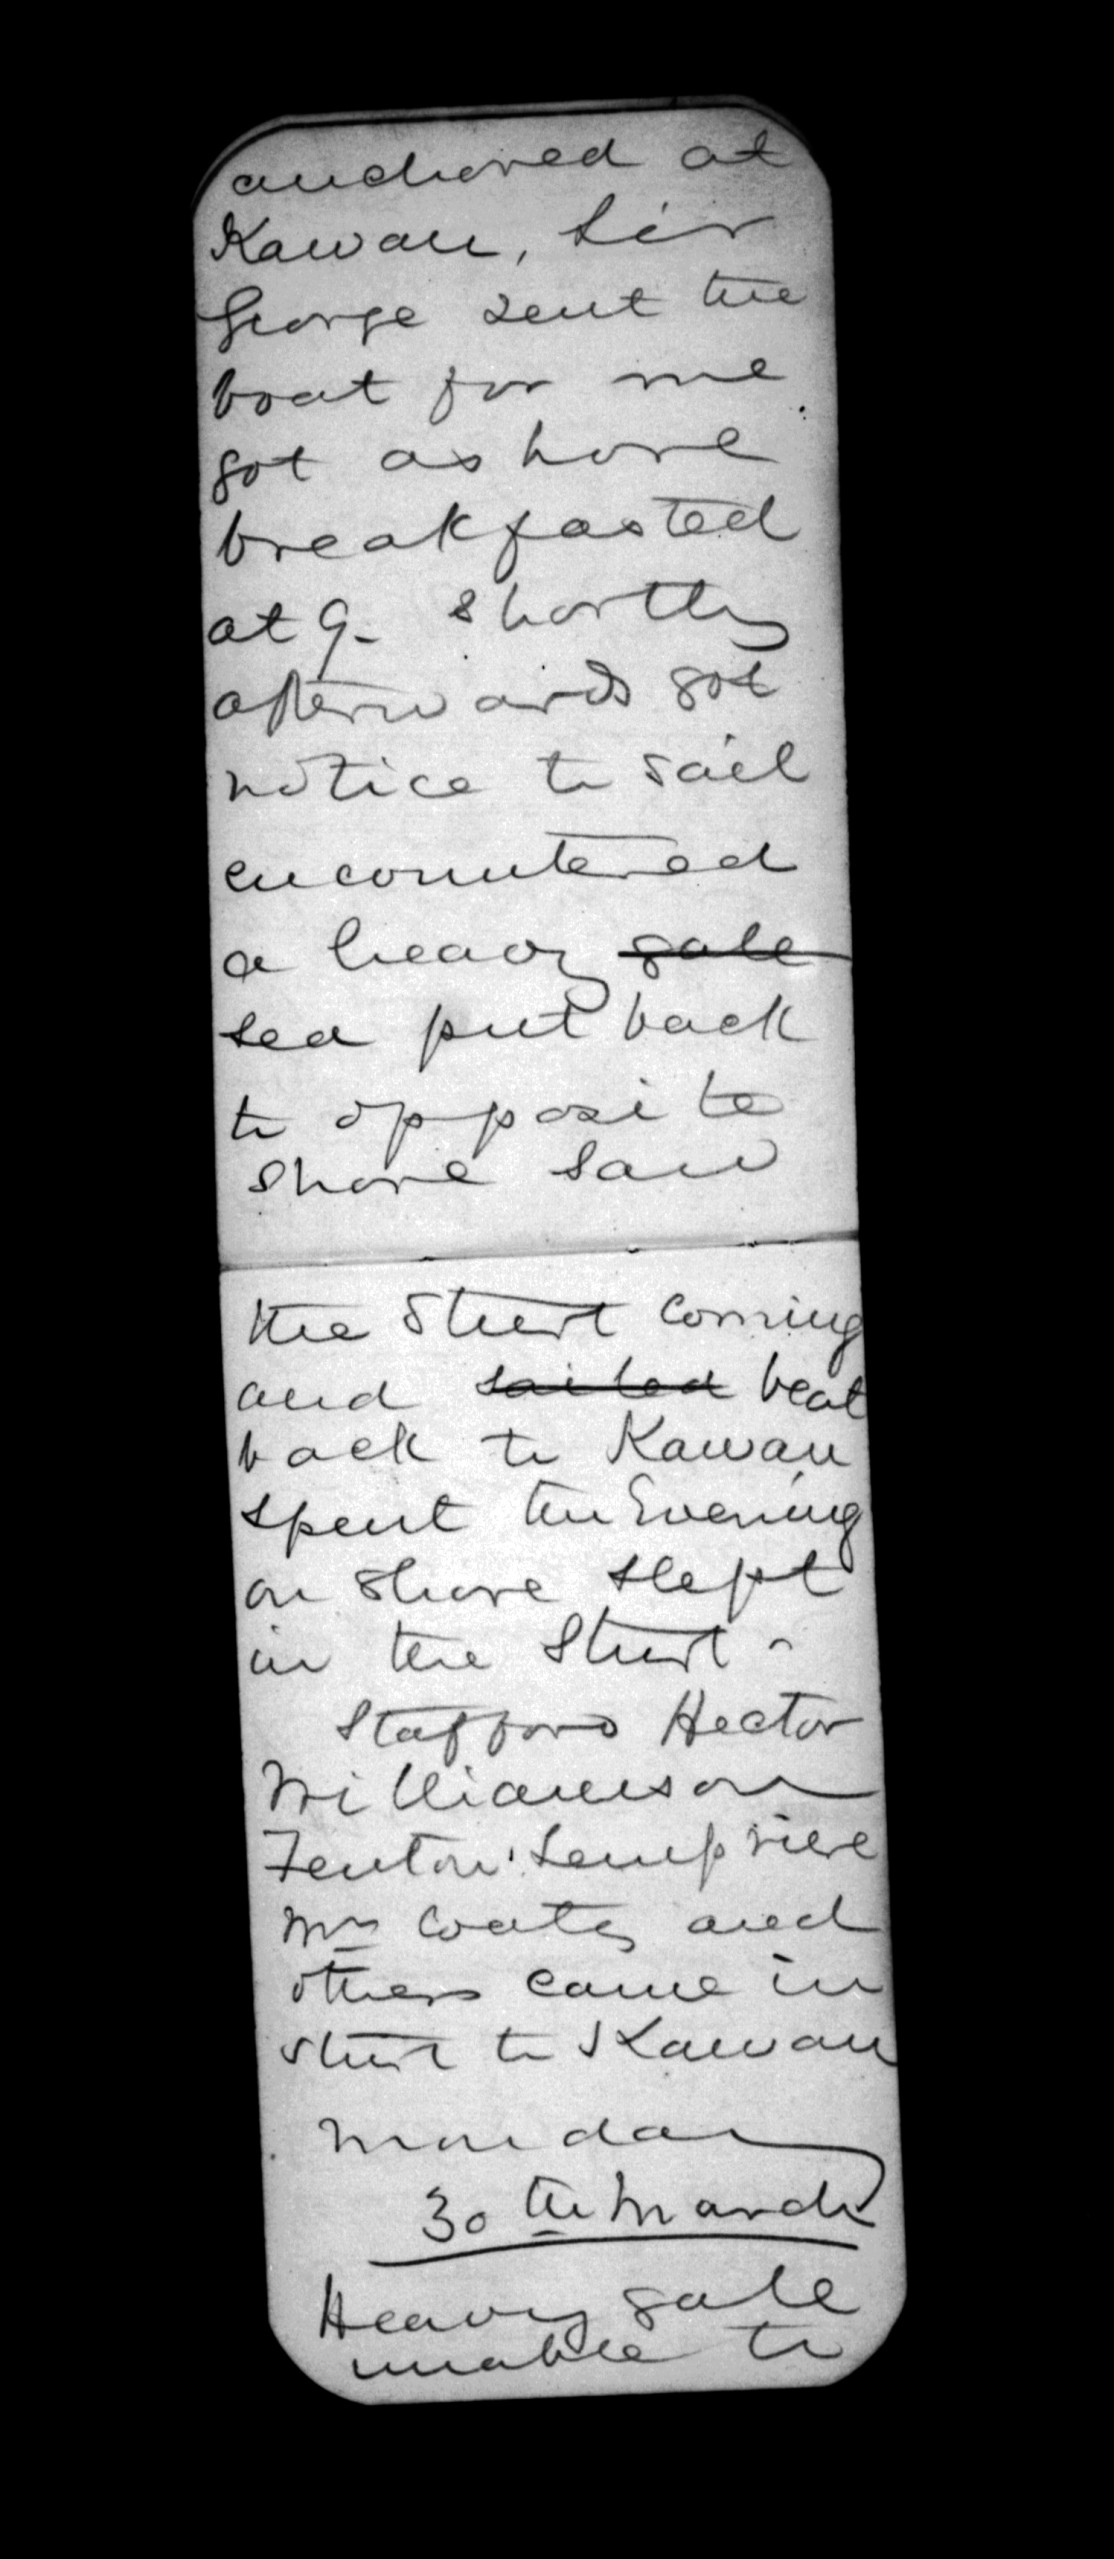 anchored at
Kawau, Sir
George sent the
boat for me
got ashore
breakfasted
at 9- shortly
afterwards got
notice to sail
encountered
a heavy gale
sea put back
to opposite
shore saw
the Sturt coming
and sailed beat
back to Kawau
spent the Evening
on shore slept
in the Sturt -
Stafford Hector
Williamson
Fenton Lempriere
Mr Coates and
others came in
Sturt to Kawau
Monday
30th March
Heavy gale
unable to